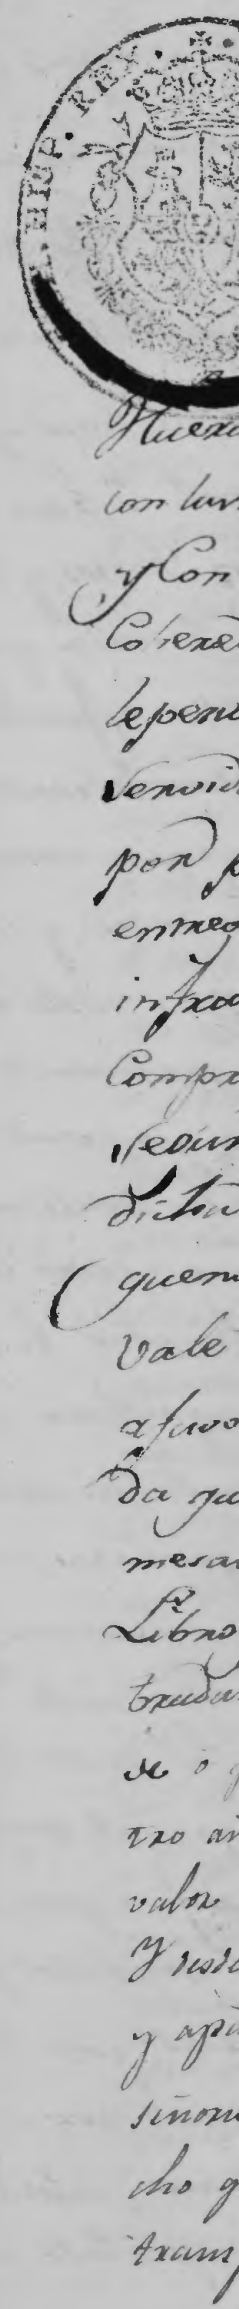 HISP. REX.
Huer
con lin
y Con
Cohere
le pern
vencid
por p
entreg
infra
Compr
segun
dicha
quem
vale
a favo
da qu
mesa
Libro
trada
de o
tro a
valor
Y desd
y apa
señori
cho q
tram